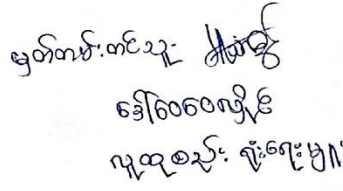 မှတ်တမ်းတင်သူ
ဒေါ်ဝေဝေလှိုင်
လူထုစည်းရုံးရေးမှူး